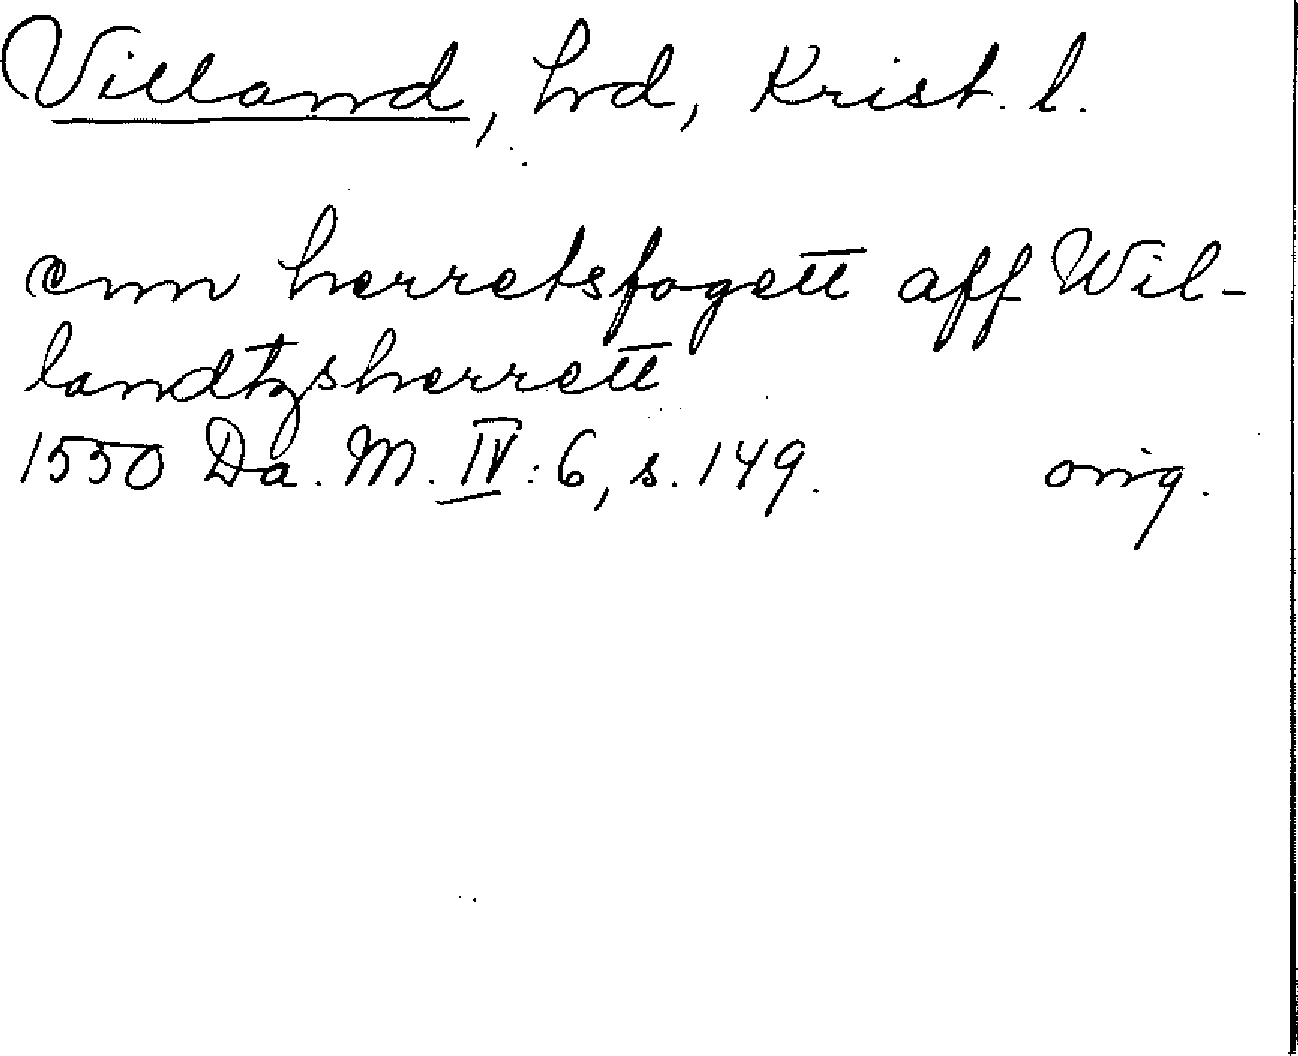 Villand, hd, Krist. l.
enn herretsfogett aff Wil-
landtzsherrett
1550 Da. M. IV: 6, s. 149. orig.